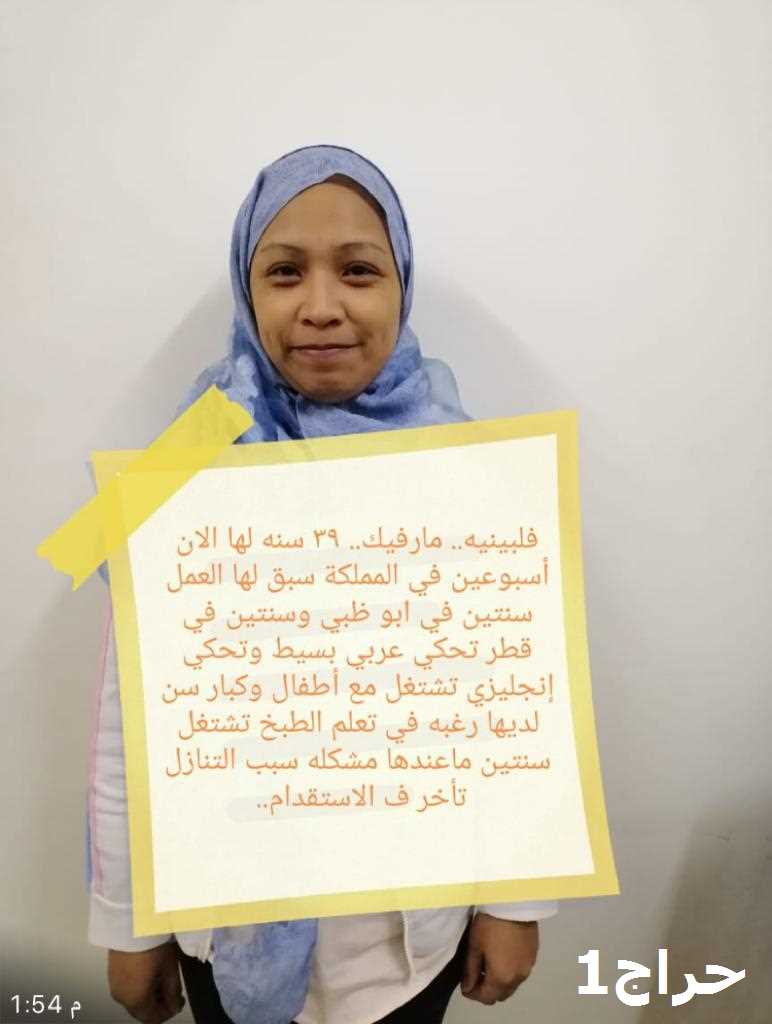 فلبينيه.. مارفيك.. ٣٩ سنه لها الان
أسبوعين في المملكة سبق لها العمل
سنتين في ابو ظبي وسنتين في
قطر تحكي عربي بسيط وتحكي
إنجليزي تشتغل مع أطفال وكبار سن
لديها رغبه في تعلم الطبخ تشتغل
سنتين ماعندها مشكله سبب التنازل
تأخر ف الاستقدام..
حراج1
1:54 م